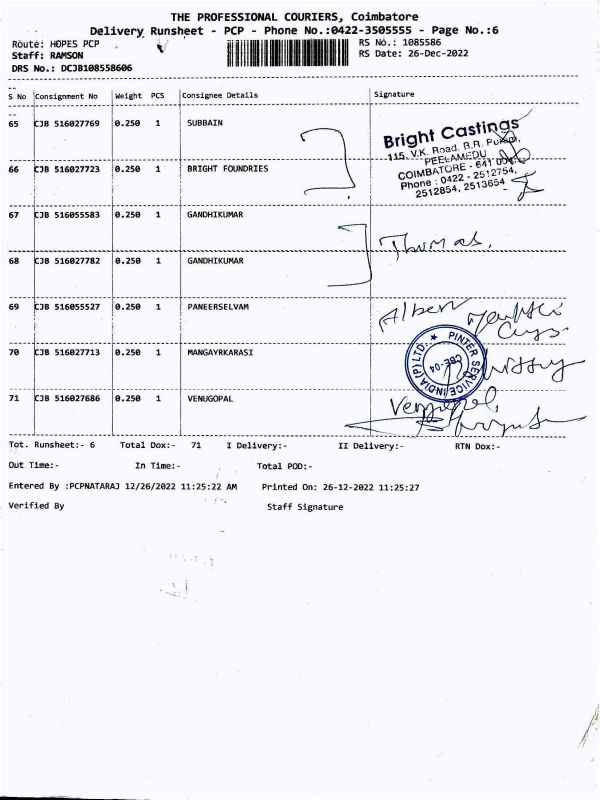 THE PROFESSIONAL COURIERS, Coimbatore
Delivery Runsheet - PCP - Phone No.:0422-3505555 - Page No.:6
Route: HOPES PCP
RS No.: 1085586
Staff: RAMSON
RS Date: 26-Dec-2022
DRS No.: DCJB108558606
S No Consignment No Weight PCS Consignee Details Signature
65 CJB 516027769 0.250 1 SUBBAIN
Bright Castings
115, V.K. Road, B.R. Puram,
PEELAMEDU
COIMBATORE - 641 004
Phone : 0422 - 2512754,
2512854, 2513654
66 CJB 516027723 0.250 1 BRIGHT FOUNDRIES
67 CJB 516055583 0.250 1 GANDHIKUMAR
Thomas,
68 CJB 516027782 0.250 1 GANDHIKUMAR
69 CJB 516055527 0.250 1 PANEERSELVAM
Albert
70 CJB 516027713 0.250 1 MANGAYRKARASI
PINTER SERVICE INDIA (P) LTD. ★
CBE-04
71 CJB 516027686 0.250 1 VENUGOPAL
Tot. Runsheet:- 6 Total Dox:- 71 I Delivery:- II Delivery:- RTN Dox:-
Out Time:- In Time:- Total POD:-
Entered By :PCPNATARAJ 12/26/2022 11:25:22 AM Printed On: 26-12-2022 11:25:27
Verified By Staff Signature